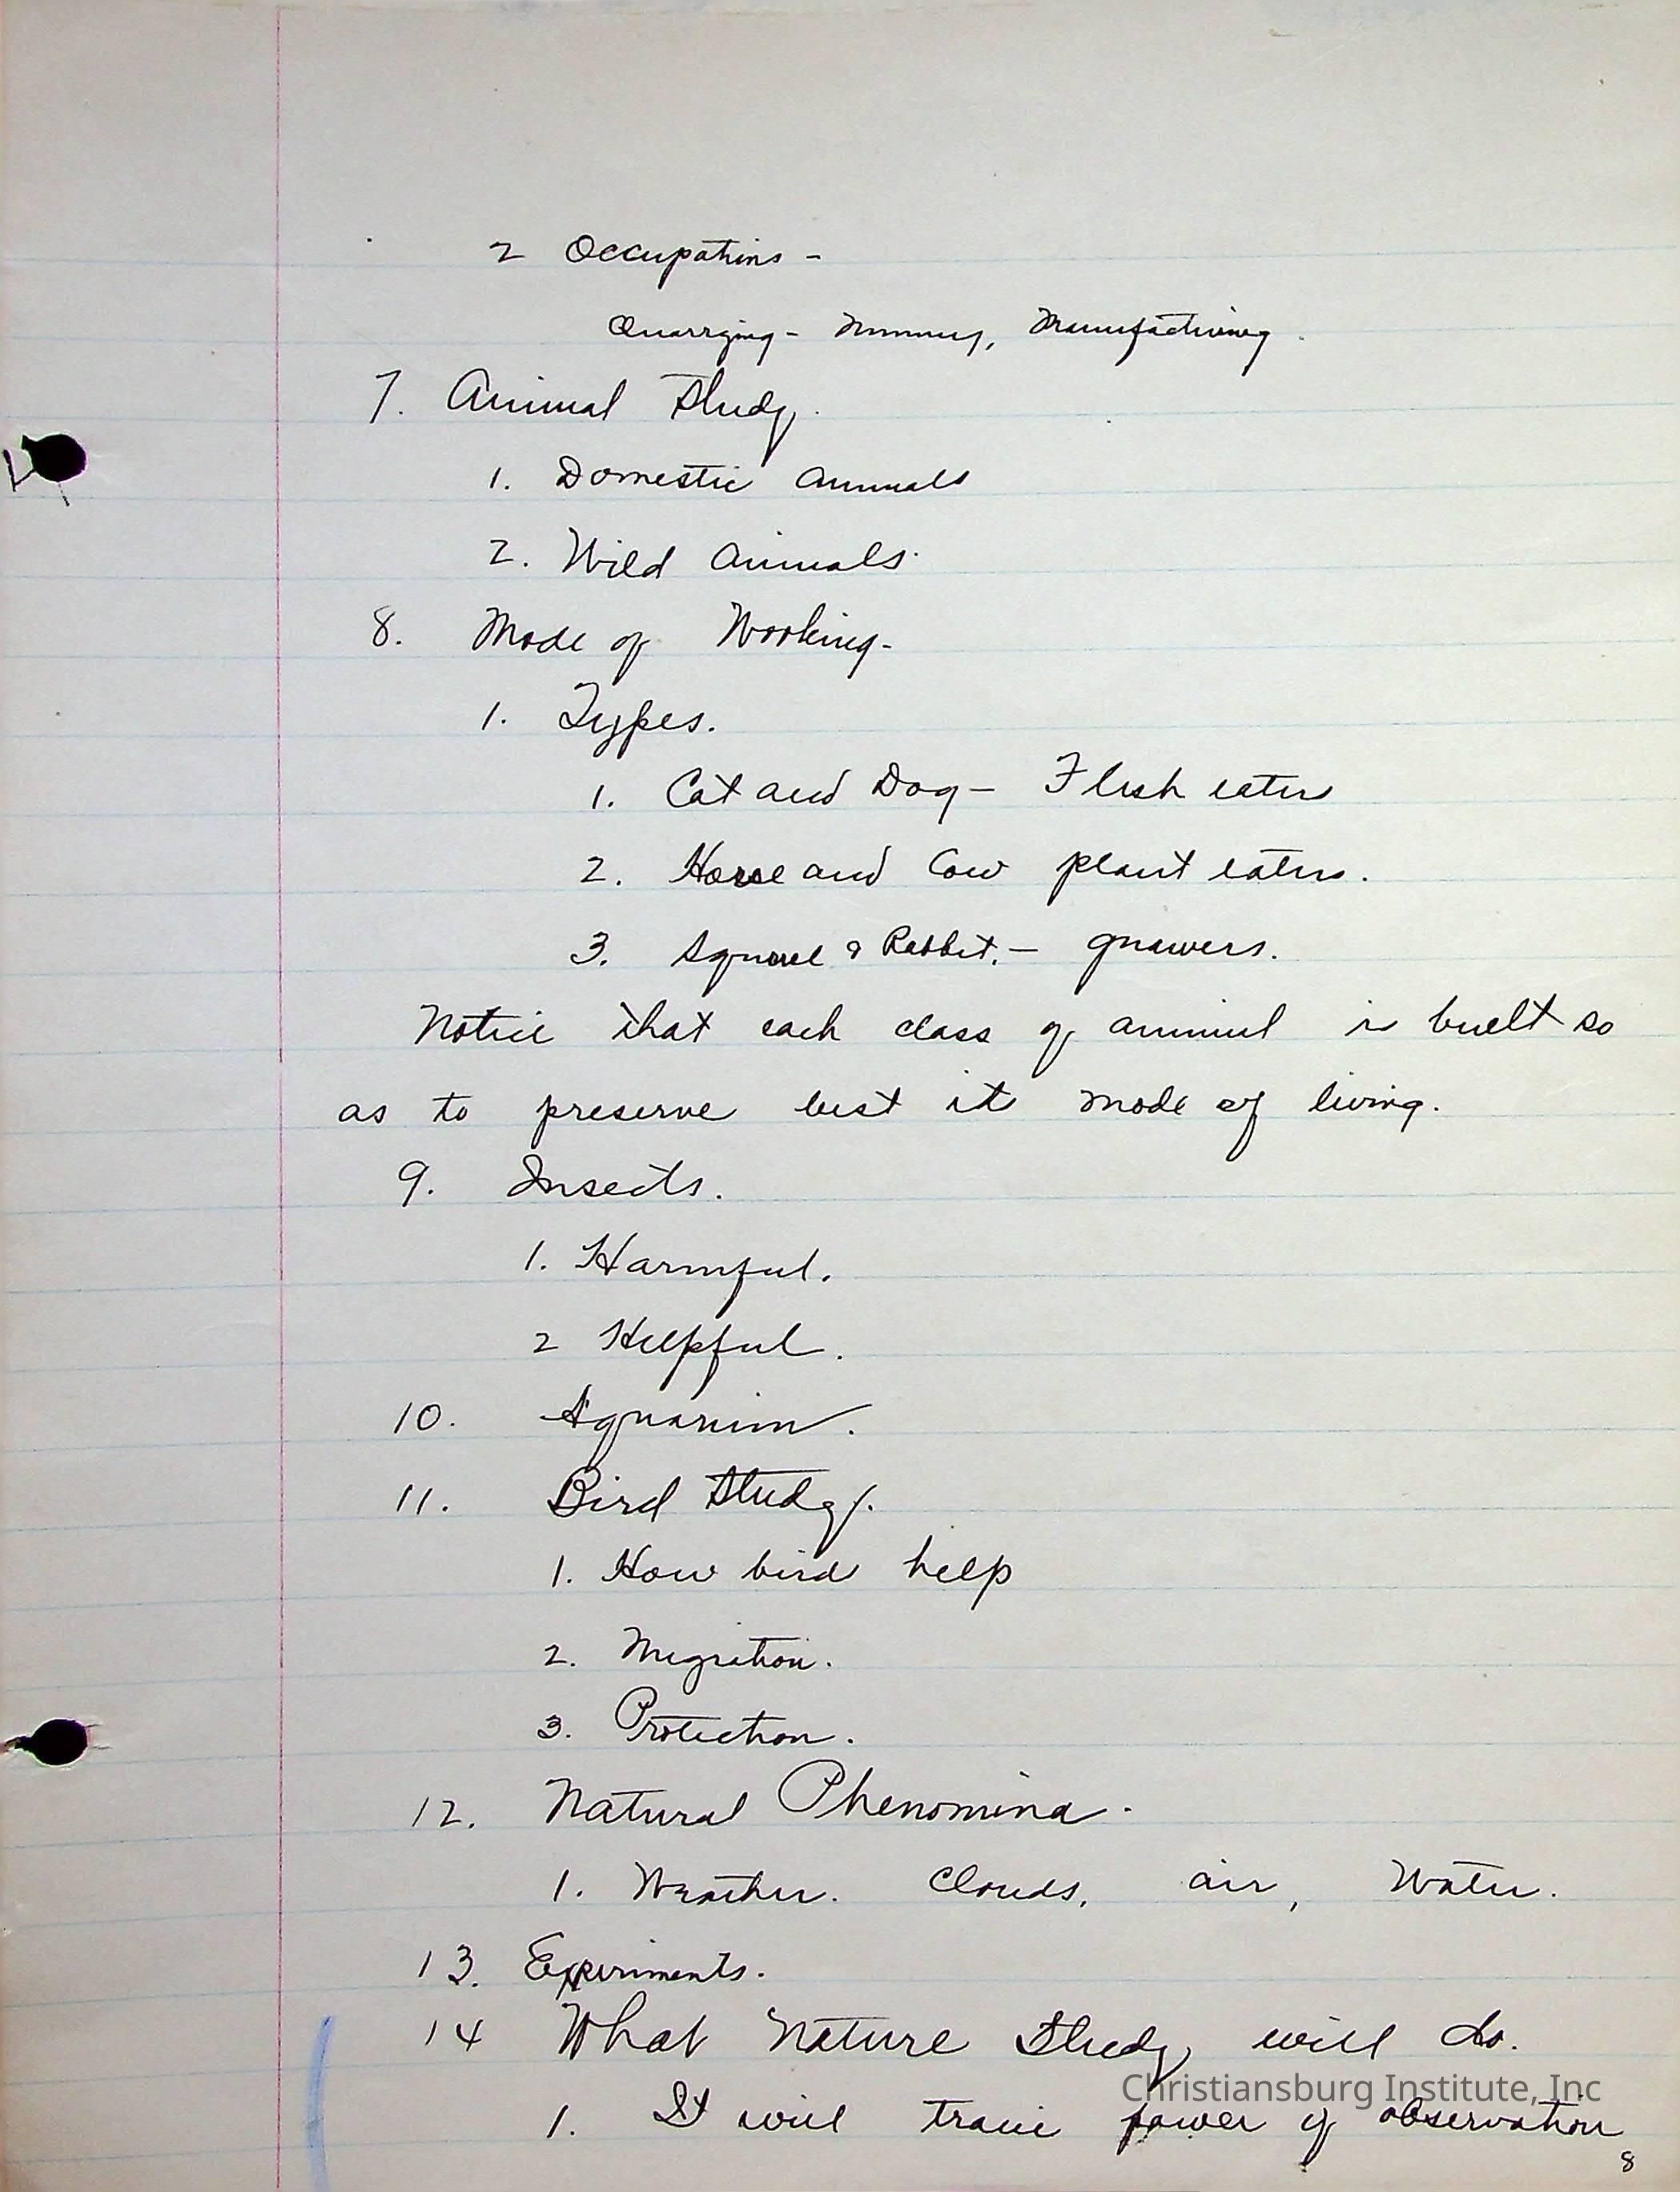 2 Occupations -
Quarrying - Mining, Manufacturing.
7. Animal Study.
1. Domestic animals
2. Wild animals.
8. Mode of Working -
1. Types.
1. Cat and Dog - Flesh eaters
2. Horse and Cow plant eaters.
3. Squirrel & Rabbit. - gnawers.
Notice that each class of animal is built so
as to preserve best its mode of living.
9. Insects.
1. Harmful.
2 Helpful.
10. Aquarium.
11. Bird Study.
1. How bird help
2. Migration.
3. Protection.
12. Natural Phenomina.
1. Weather. Clouds, air, Water.
13. Experiments.
14 What Nature Study will do.
Christiansburg Institute, Inc
1. It will train power of observation
8